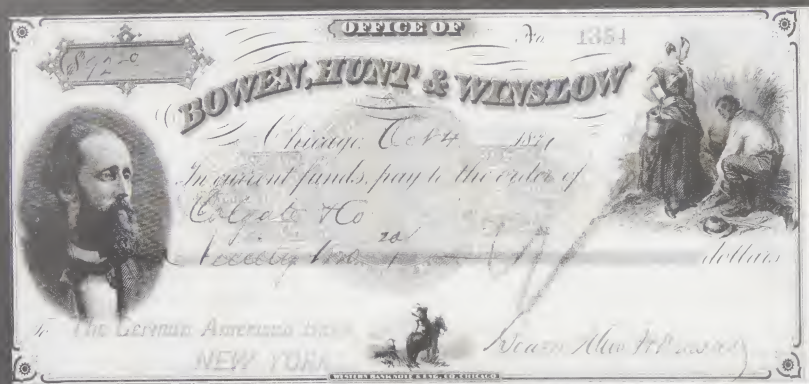 OFFICE OF
No 1354
$92 20
BOWEN, HUNT & WINSLOW
Chicago, Oct 4 1871
In current funds, pay to the order of
Colgate & Co
Ninety two 20/ dollars
To The German American Bank
NEW YORK
Bowen Hunt & Winslow
WESTERN BANK NOTE & ENG. CO. CHICAGO